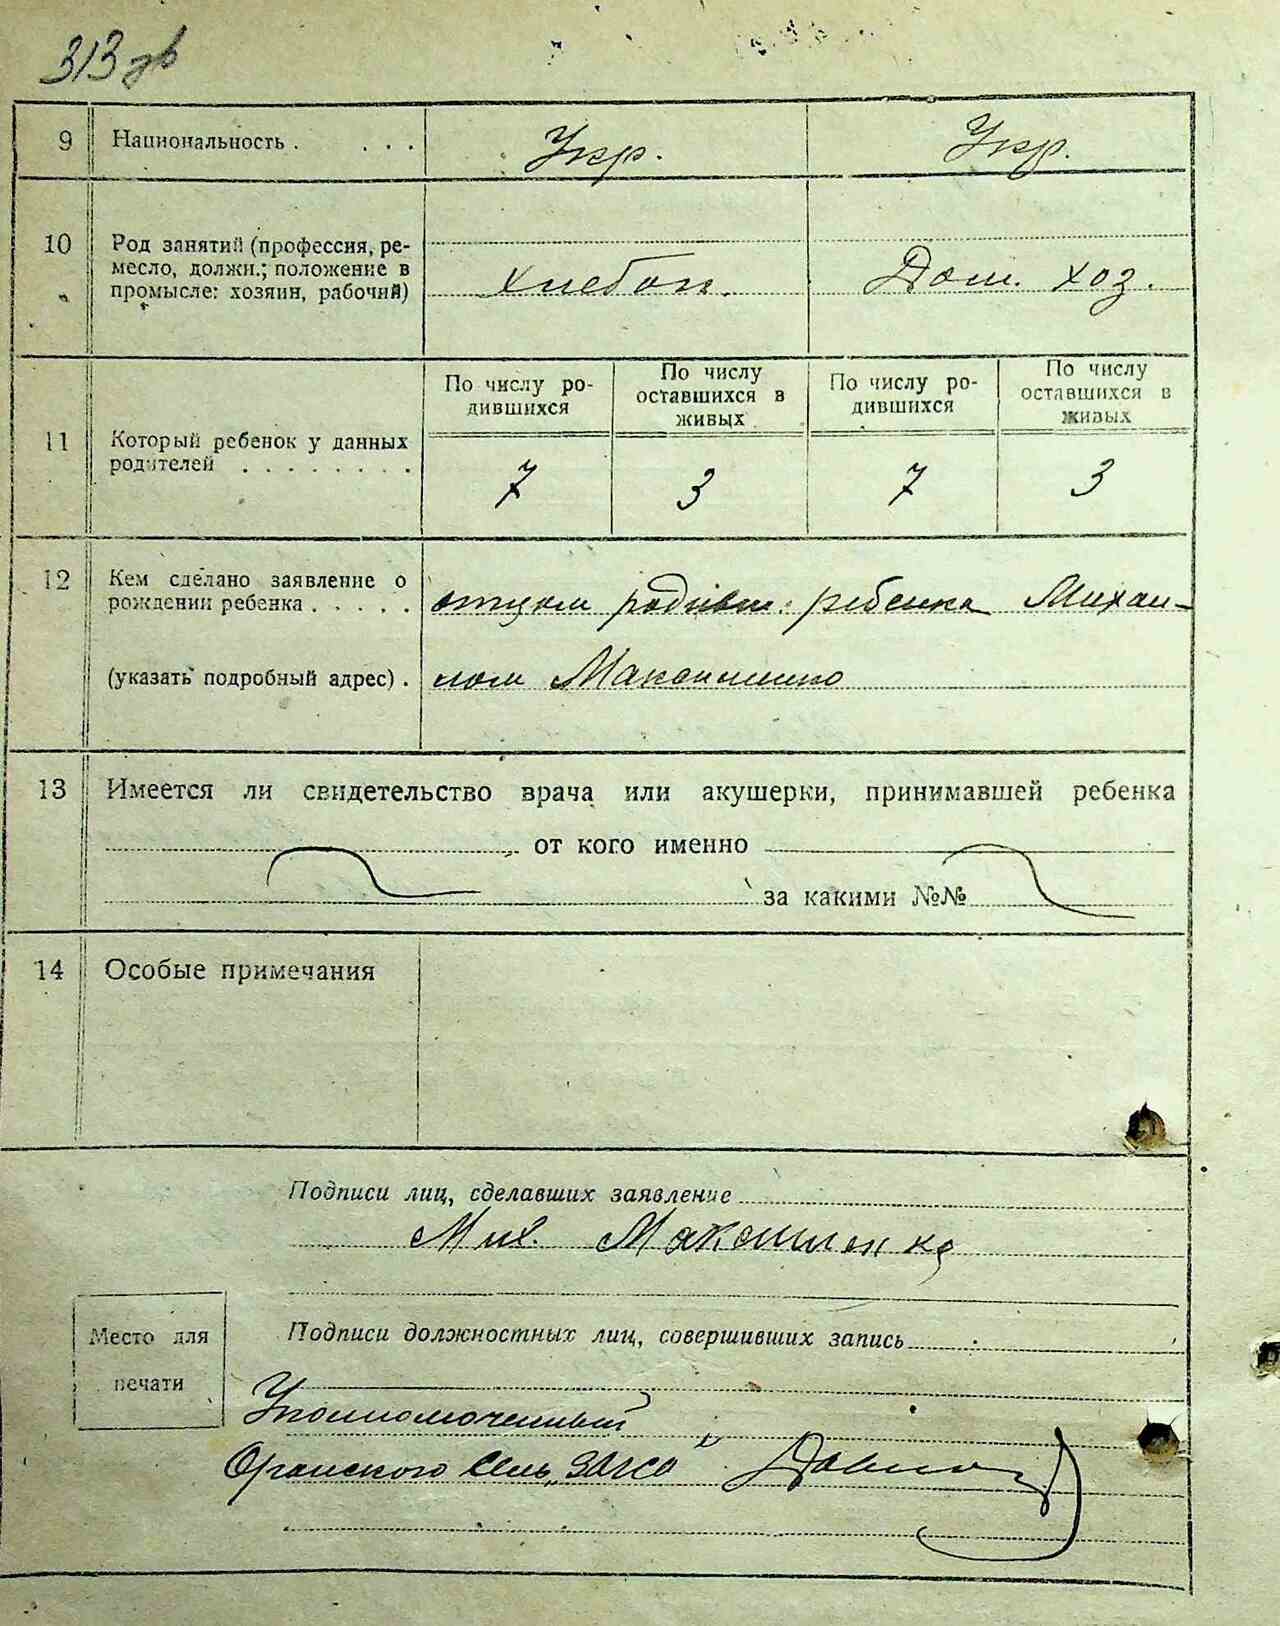 313 зв
9 Национальность . . . . Укр. Укр.
10 Род занятий (профессия, ре-
месло, должн.; положение в
промысле: хозяин, рабочий) хлебоп. Дом. хоз.
По числу ро-
дившихся
По числу
оставшихся в
живых
По числу ро-
дившихся
По числу
оставшихся в
живых
11 Который ребенок у данных
родителей . . . . . . . . 7 3 7 3
12 Кем сделано заявление о
рождении ребенка . . . . . отцом родивш. ребенка Михаи-
(указать подробный адрес) . лом Максименко
13 Имеется ли свидетельство врача или акушерки, принимавшей ребенка
от кого именно
за какими №№
14 Особые примечания
Подписи лиц, сделавших заявление
Мих. Максименко
Место для
печати
Подписи должностных лиц, совершивших запись
Уполномоченный